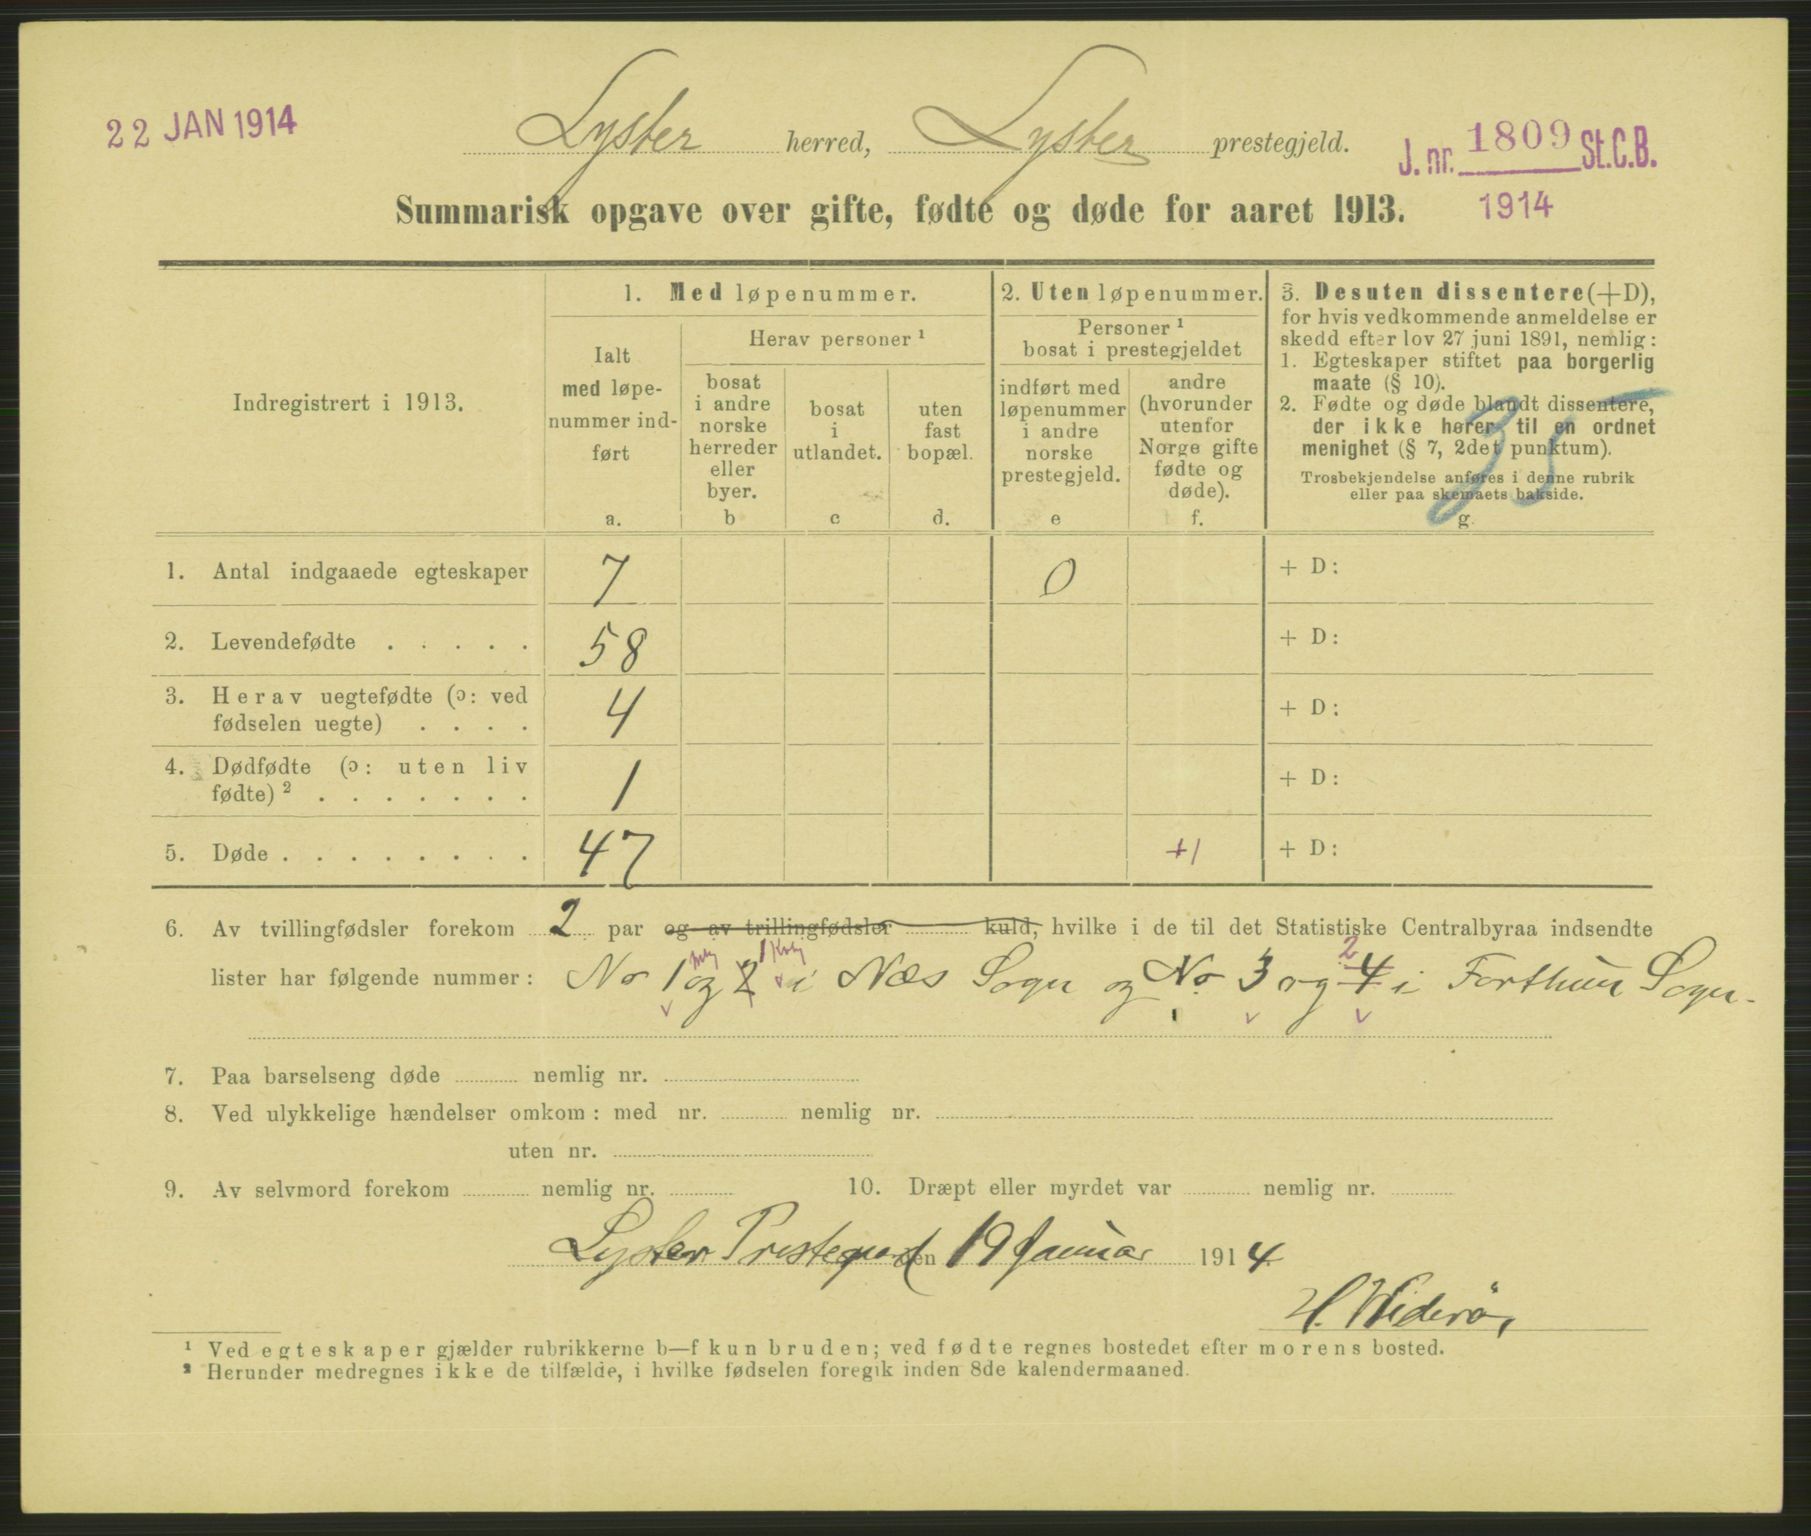 22 JAN 1914
Lyster herred, Lyster prestegjeld.
J. nr. 1809 St.C.B.
1914
Summarisk opgave over gifte, fødte og døde for aaret 1913.
Indregistrert i 1913.
1. Med løpenummer.
Ialt
med løpe-
nummer ind-
ført
a.
Herav personer ¹
bosat
i andre
norske
herreder
eller
byer.
b
bosat
i
utlandet.
c
uten
fast
bopæl.
d.
2. Uten løpenummer.
Personer ¹
bosat i prestegjeldet
indført med
løpenummer
i andre
norske
prestegjeld.
e
andre
(hvorunder
utenfor
Norge gifte
fødte og
døde).
f.
3. Desuten dissentere (+D),
for hvis vedkommende anmeldelse er
skedd efter lov 27 juni 1891, nemlig:
1. Egteskaper stiftet paa borgerlig
maate (§ 10).
2. Fødte og døde blandt dissentere,
der ikke hører til en ordnet
menighet (§ 7, 2det punktum).
Trosbekjendelse anføres i denne rubrik
eller paa skemaets bakside.
g.
35
1. Antal indgaaede egteskaper 7 0 + D:
2. Levendefødte . . . . . 58 + D:
3. Herav uegtefødte (ɔ: ved
fødselen uegte) . . . . 4 + D:
4. Dødfødte (ɔ: uten liv
fødte) ² . . . . . . . 1 + D:
5. Døde . . . . . . . . 47 +1 + D:
6. Av tvillingfødsler forekom 2 par og av trillingfødsler kuld, hvilke i de til det Statistiske Centralbyraa indsendte
lister har følgende nummer: No 1 og 2 i Næs Sogn og No 3 og 4 i Forthun Sogn.
2
7. Paa barselseng døde nemlig nr.
8. Ved ulykkelige hændelser omkom: med nr. nemlig nr.
uten nr.
9. Av selvmord forekom nemlig nr. 10. Dræpt eller myrdet var nemlig nr.
Lyster Prestegard den 19 Januar 1914
H. Widerö,
¹ Ved egteskaper gjælder rubrikkerne b—f kun bruden; ved fødte regnes bostedet efter morens bosted.
² Herunder medregnes ikke de tilfælde, i hvilke fødselen foregik inden 8de kalendermaaned.